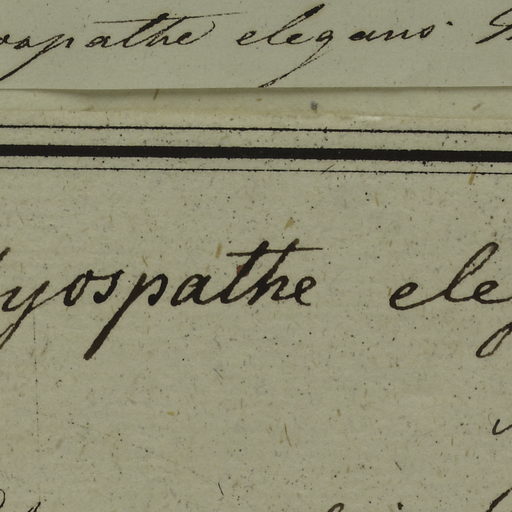 ospathe elegans.
yospathe ele